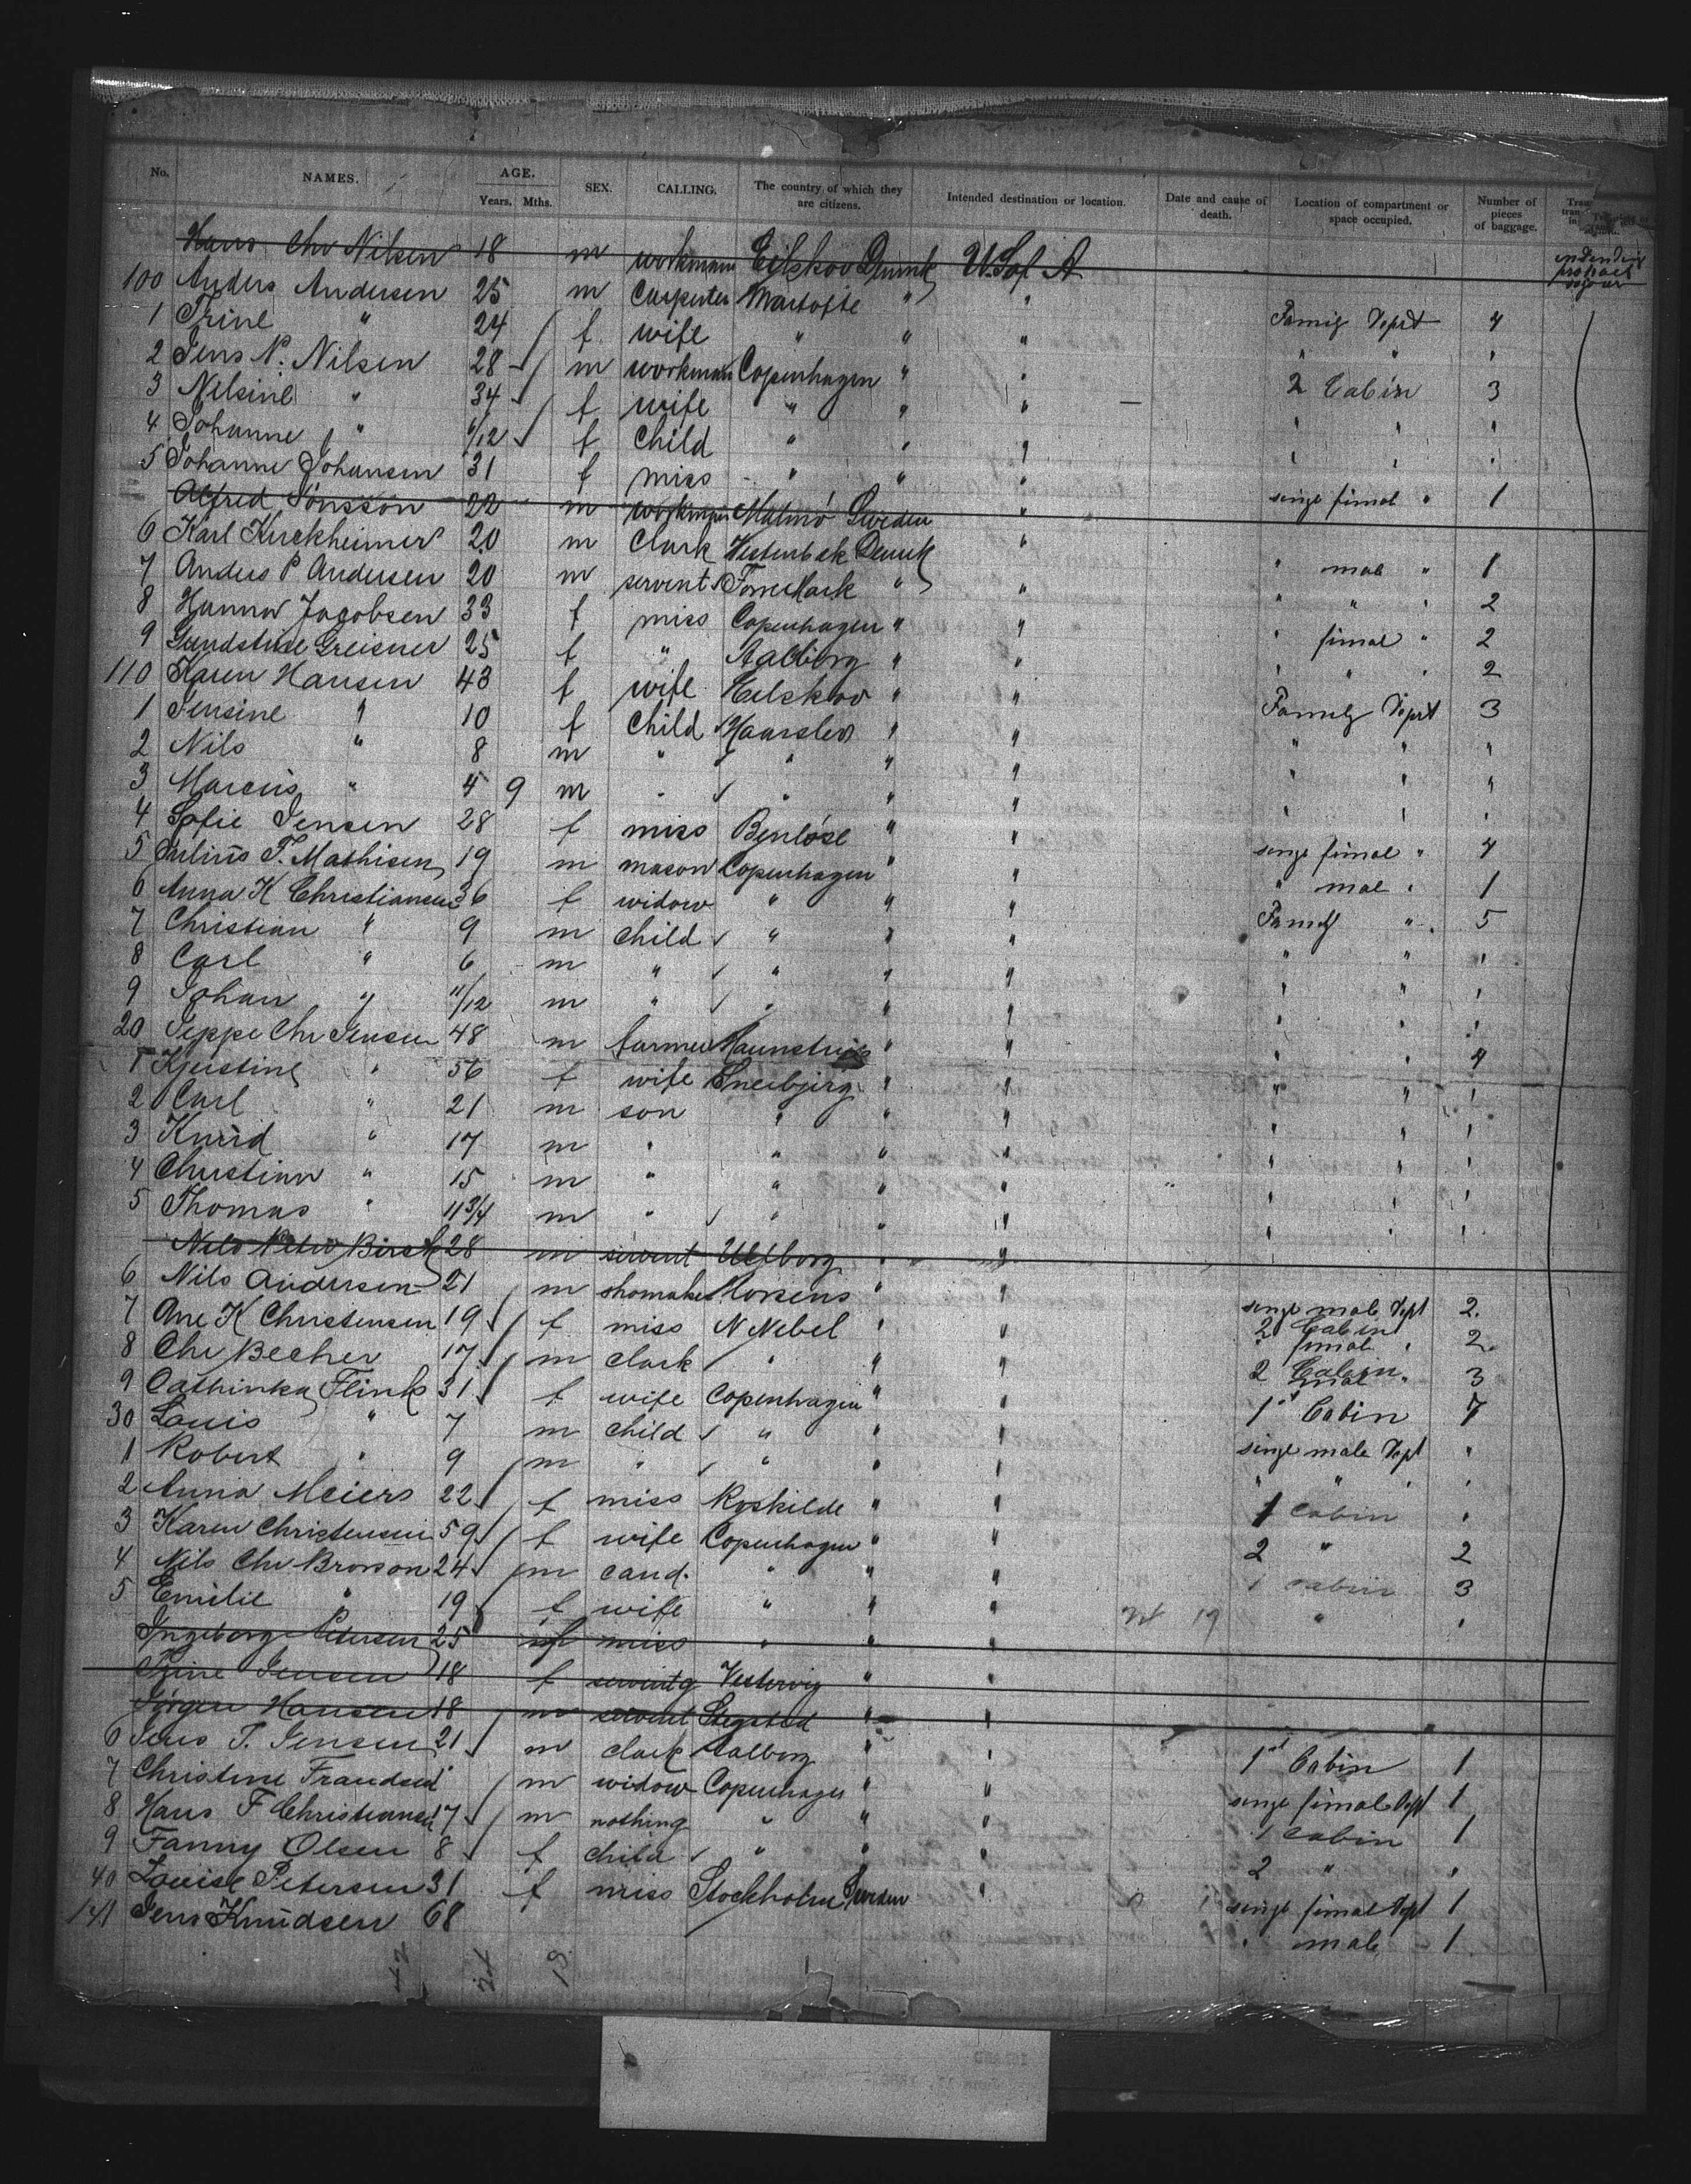 No. NAMES. AGE. Years. Mths. SEX. CALLING. The country of which they are citizens. Intended destination or location. Date and cause of death. Location of compartment or space occupied. Number of pieces of baggage.
Hans Chr Nilsen 18 m workmann Eilskov Denmk U.S of A
100 Anders Andersen 25 m Carpenter Martofte " " Famig Deprt 4
1 Trine " 24 f wife " " " " " "
2 Jens N. Nilsen 28 m workmann Copenhagen " " 2 Cabin 3
3 Nilsine " 34 f wife " " " " " "
4 Johanne " 6/12 f Child " " " " " "
5 Johanne Johansen 31 f miss " " " singe fimal " 1
Alfred Jönsson 22 m workman Malmö Sweden "
6 Karl Kirckheimer 20 m Clark Vesterbek Denmk " " mal " 1
7 Anders P Andersen 20 m servent " " " " " 2
8 Hanna Jacobsen 33 f miss Copenhagen " " " fimal " 2
9 Greisner 25 f " Aalborg " " " " " 2
110 Karen Hansen 43 f wife Eelskov " " Family Deprt 3
1 Jensine " 10 f Child Haarslev " " " " "
2 Nils " 8 m " " " " " " "
3 Marcus " 4 9 m " " " " " " "
4 Sofie Jensen 28 f miss Benlöse " " singe fimal " 4
5 Julius T. Mathisen 19 m mason Copenhagen " " " mal " 1
6 Anna K Christiansen 36 f widow " " " Family " 5
7 Christian " 9 m child " " " " " "
8 Carl " 6 m " " " " " " "
9 Johan " 11/12 m " " " " " " "
20 Jeppe Chr Jensen 48 m farmer " " " " 4
1 Kjerstine " 56 f wife Sneibjerg " " " " "
2 Carl " 21 m son " " " " " "
3 Knud " 17 m " " " " " " "
4 Christian " 15 m " " " " " " "
5 Thomas " 11 3/4 m " " " " " " "
Nils Peter Birch 28 m servent Ulfborg " "
6 Nils Andersen 21 m shomaker Horsens " " singe male Dept 2
7 Ane K Christensen 19 f miss N Nebel " " 2 Cabin fimal " 2
8 Chr Becher 17 m clark " " " 2 Cabin mal " 3
9 Cathinka Flink 31 f wife Copenhagen " " 1st Cabin 7
30 Louis " 7 m child " " " singe male Dept "
1 Robert " 9 m " " " " " " " "
2 Anna Meiers 22 f miss Roskilde " " 1 Cabin "
3 Karen Christensen 59 f wife Copenhagen " " 2 " 2
4 Nils Chr Bronson 24 m cand. " " " 1 cabin 3
5 Emilie " 19 f wife " " " 24 19 " "
Ingeborg Petersen 25 f miss " " "
Trine Jensen 18 f Vestervig " "
Jörgen Hansen 18 m servent Stegsted " "
6 Jens T. Jensen 21 m clark Aalborg " " 1st Cabin 1
7 Christine Frandsen m widow Copenhagen " " singe fimal Dept 1
8 Hans F Christiansen 17 m nothing " " " 1 cabin 1
9 Fanny Olsen 8 f child " " " 2 " "
40 Louise Petersen 31 f miss Stockholm Sweden " singe fimal Dept 1
141 Jens Knudsen 68 " male 1
42 24 19